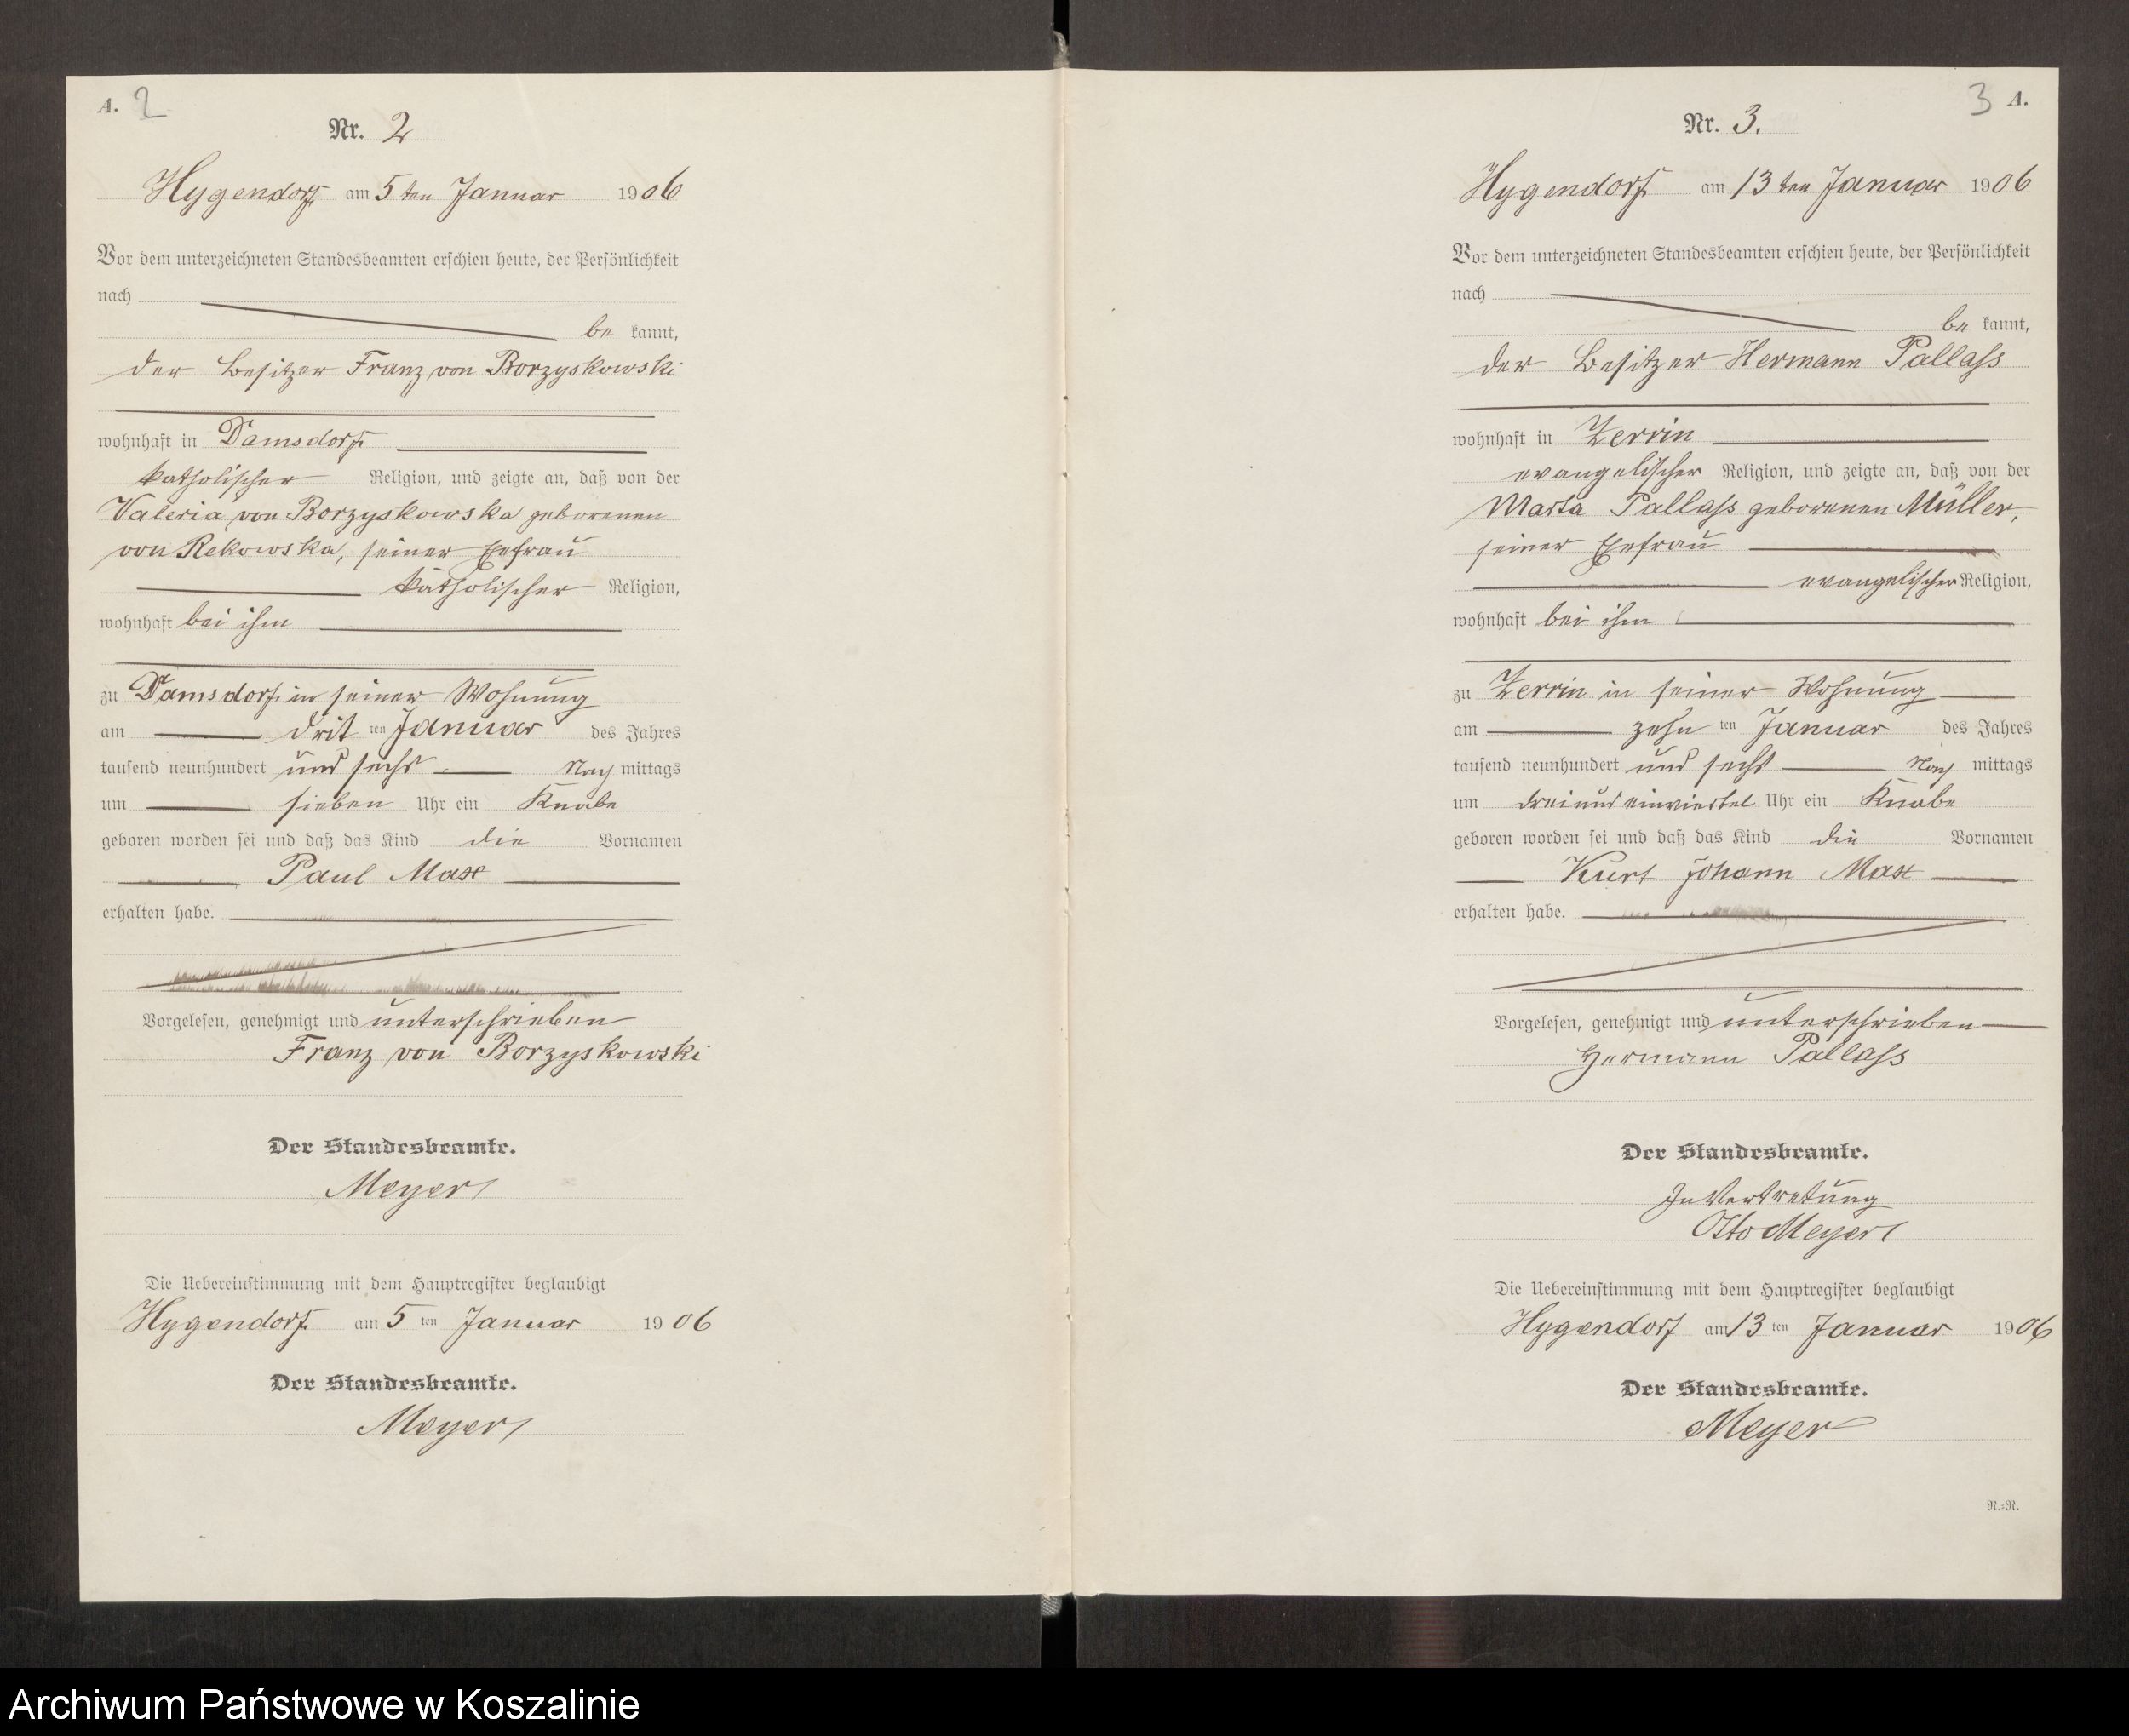 A. 2
Nr. 2
Hygendorf am 5ten Januar 1906
Vor dem unterzeichneten Standesbeamten erschien heute, der Persönlichkeit
nach
be kannt,
der Besitzer Franz von Borzyskowski
wohnhaft in Damsdorf
katholischer Religion, und zeigte an, daß von der
Valeria von Borzyskowska geborenen
von Rekowska, seiner Ehefrau
katholischer Religion,
wohnhaft bei ihm
zu Damsdorf in seiner Wohnung
am drit ten Januar des Jahres
tausend neunhundert und sechs Nach mittags
um sieben Uhr ein Knabe
geboren worden sei und daß das Kind die Vornamen
Paul Max
erhalten habe.
Vorgelesen, genehmigt und unterschrieben
Franz von Borzyskowski
Der Standesbeamte.
Meyer
Die Uebereinstimmung mit dem Hauptregister beglaubigt
Hygendorf am 5 ten Januar 1906
Der Standesbeamte.
Meyer
3 A.
Nr. 3.
Hygendorf am 13ten Januar 1906
Vor dem unterzeichneten Standesbeamten erschien heute, der Persönlichkeit
nach
be kannt,
der Besitzer Hermann Pallass
wohnhaft in Zerrin
evangelischer Religion, und zeigte an, daß von der
Marta Pallass geborenen Müller,
seiner Ehefrau
evangelischer Religion,
wohnhaft bei ihm
zu Zerrin in seiner Wohnung
am zehn ten Januar des Jahres
tausend neunhundert und sechs Nach mittags
um drei und einviertel Uhr ein Knabe
geboren worden sei und daß das Kind die Vornamen
Kurt Johann Max
erhalten habe.
Vorgelesen, genehmigt und unterschrieben
Hermann Pallass
Der Standesbeamte.
In Vertretung
Otto Meyer
Die Uebereinstimmung mit dem Hauptregister beglaubigt
Hygendorf am 13 ten Januar 1906
Der Standesbeamte.
Meyer
R.=R.
Archiwum Państwowe w Koszalinie